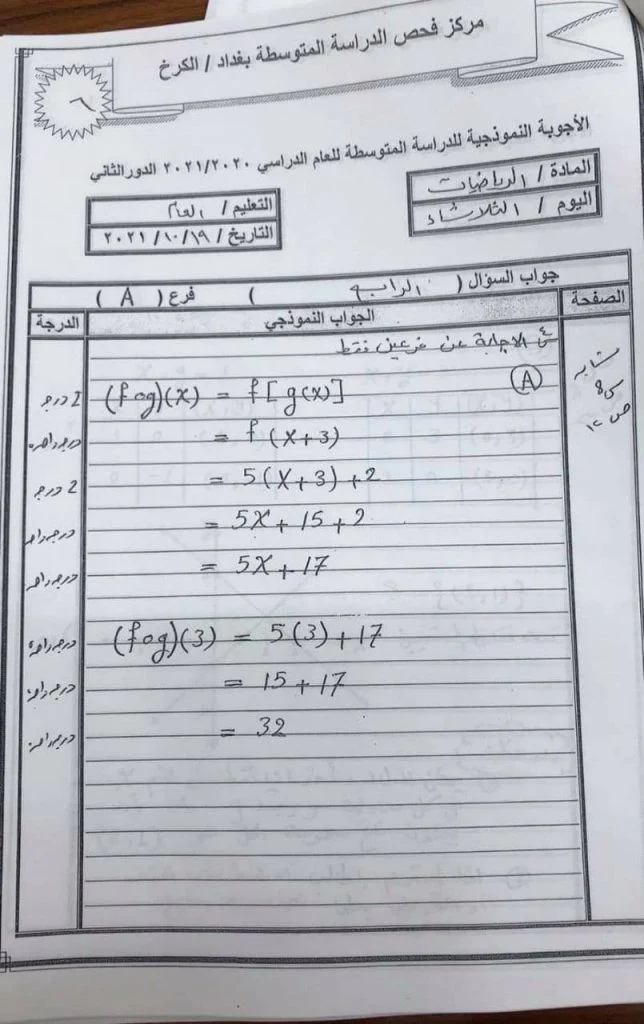 مركز فحص الدراسة المتوسطة بغداد / الكرخ
٦
الأجوبة النموذجية للدراسة المتوسطة للعام الدراسي ٢٠٢١/٢٠٢٠ الدور الثاني
المادة / الرياضيات
التعليم / العام
اليوم / الثلاثاء
التاريخ / ١٩ / ١٠ / ٢٠٢١
جواب السؤال ( الرابع ) فرع ( A )
الصفحة الجواب النموذجي الدرجة
الاجابة عن فرعين فقط
مشابه
ص ١٢
(A)
(fog)(x) = f[g(x)] 2 درجة
= f(x+3) درجة واحدة
= 5(x+3)+2 2 درجة
= 5x+15+2 درجة واحدة
= 5x+17 درجة واحدة
(fog)(3) = 5(3)+17 درجة واحدة
= 15+17 درجة واحدة
= 32 درجة واحدة